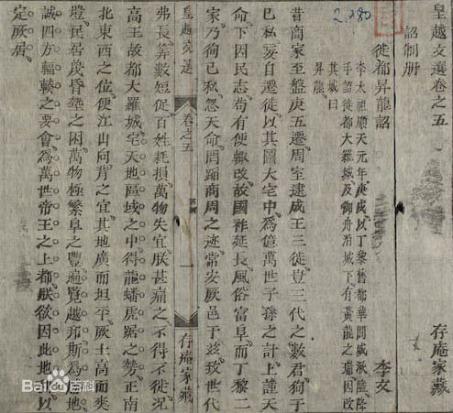 皇越文選卷之五 存庵家藏
詔制册
徙都昇龍詔 李文
李太祖順天元年庚戌以丁黎舊都華閭城湫隘
手詔徙都大羅城及御舟泊城下有黃龍之瑞因改
其城曰
昇龍
昔商家至盤庚五遷周室逮成王三徙豈三代之數君狥于
己私妄自遷徙以其圖大宅中為億萬世子孫之計上謹天
命下因民志苟有便輒改故國祚延長風俗富阜而丁黎二
家乃狥己私忽天命罔蹈商周之迹常安厥邑于茲致世代
皇越文選 卷之五 一 存庵家藏
弗長筭數短促百姓耗損萬物失宜朕甚痛之不得不徙况
高王故都大羅城宅天地區域之中得龍蟠虎踞之勢正南
北東西之位便江山向背之宜其地廣而坦平厥土高而爽
塏民居蔑昏墊之困萬物極繁阜之豐遍覽越邦斯為勝地
誠四方輻輳之要會為萬世帝王之上都朕欲因此地利以
定厥居
2.280
Bai百科